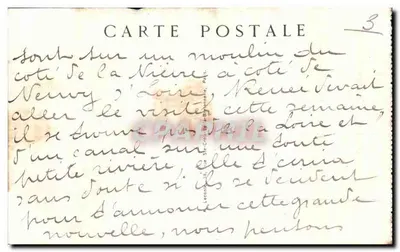 CARTE POSTALE
3
sont sur un moulin du
coté de la Nièvre à côté de
Neuvy s/ Loire, Renée devait
aller le visiter cette semaine,
il se trouve près de la Loire et
d'un canal sur une toute
petite rivière, elle t'écrira
sans doute s'ils se décident
pour t'annoncer cette grande
nouvelle, nous pensons